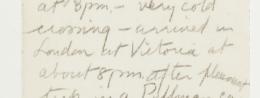 at 8pm. – very cold
crossing – arrived in
London at Victoria at
about 8pm. after pleasant
in a Pullman